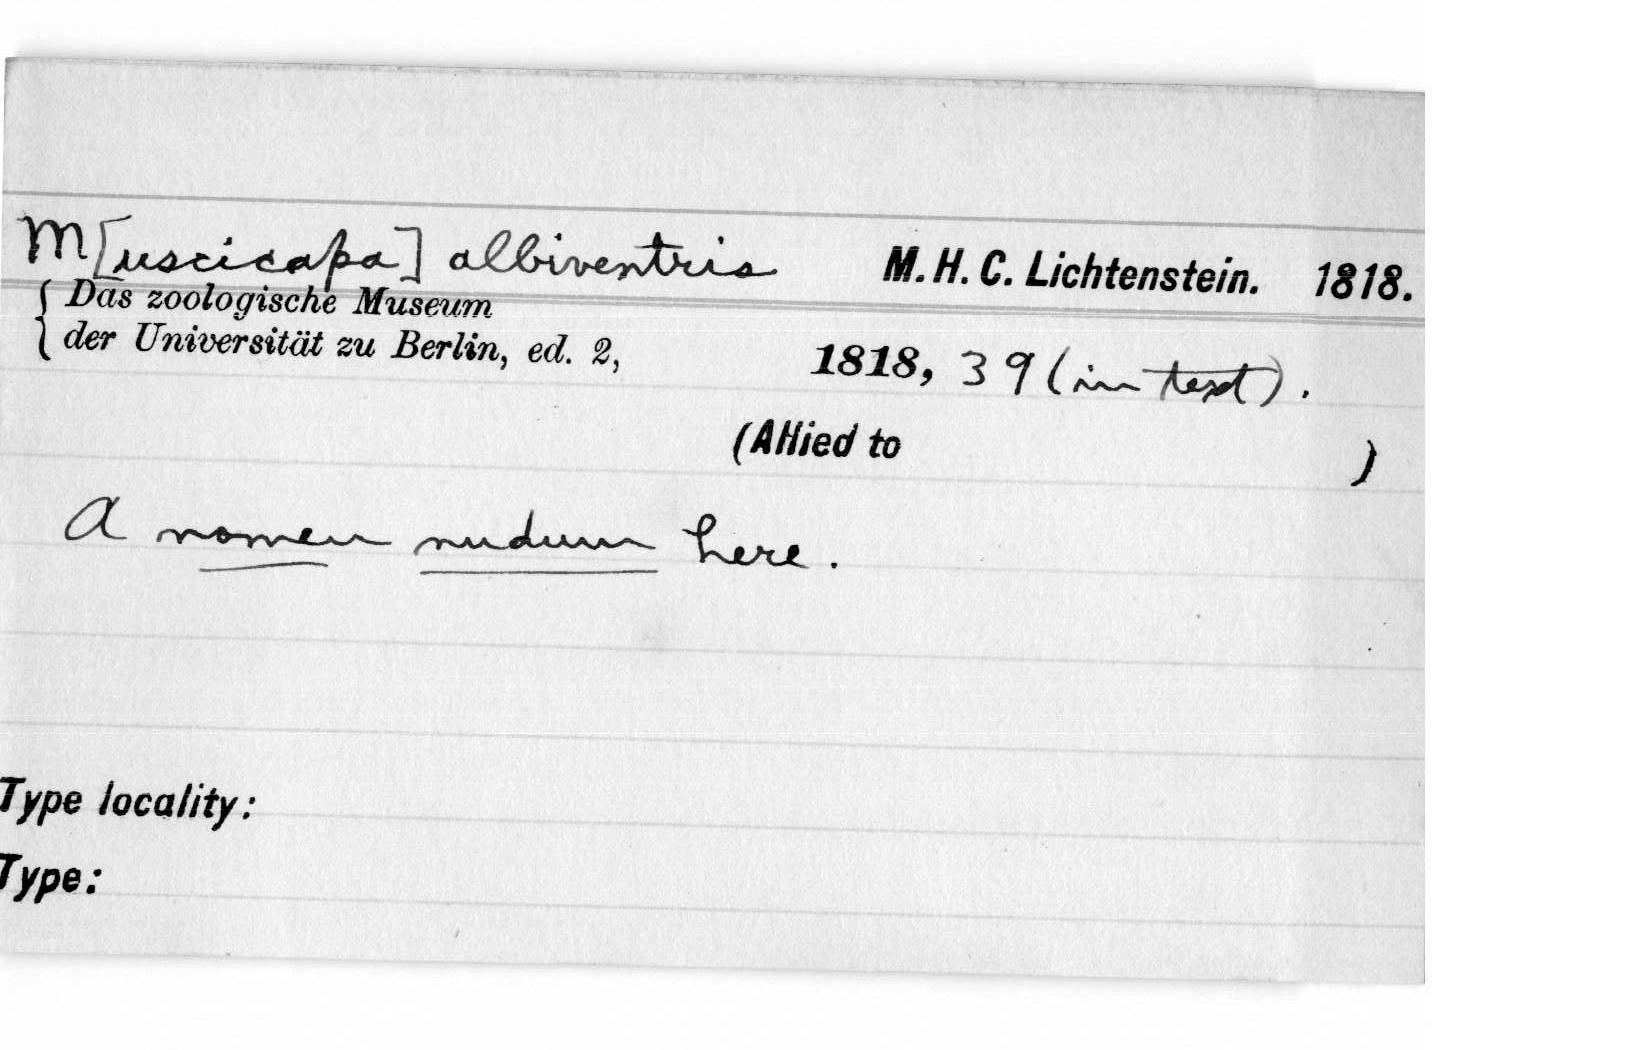 M[uscicapa] albiventris M. H. C. Lichtenstein. 1818.
{ Das zoologische Museum
der Universität zu Berlin, ed. 2, 1818, 39 (in text).
(Allied to )
A nomen nudum here.
Type locality:
Type: